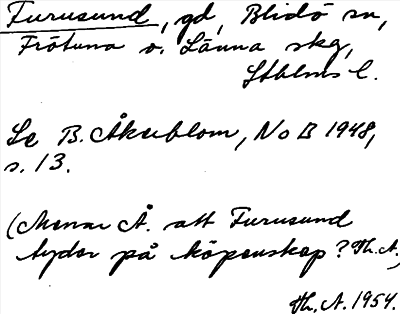 Furusund, gd, Blidö sn,
Frötuna o. Länna skg,
Sthlms l.
Se B. Åkerblom, NoB 1948,
s. 13.
(Menar Å. att Furusund
tyder på köpenskap? Th. A.,
Th. A. 1954.